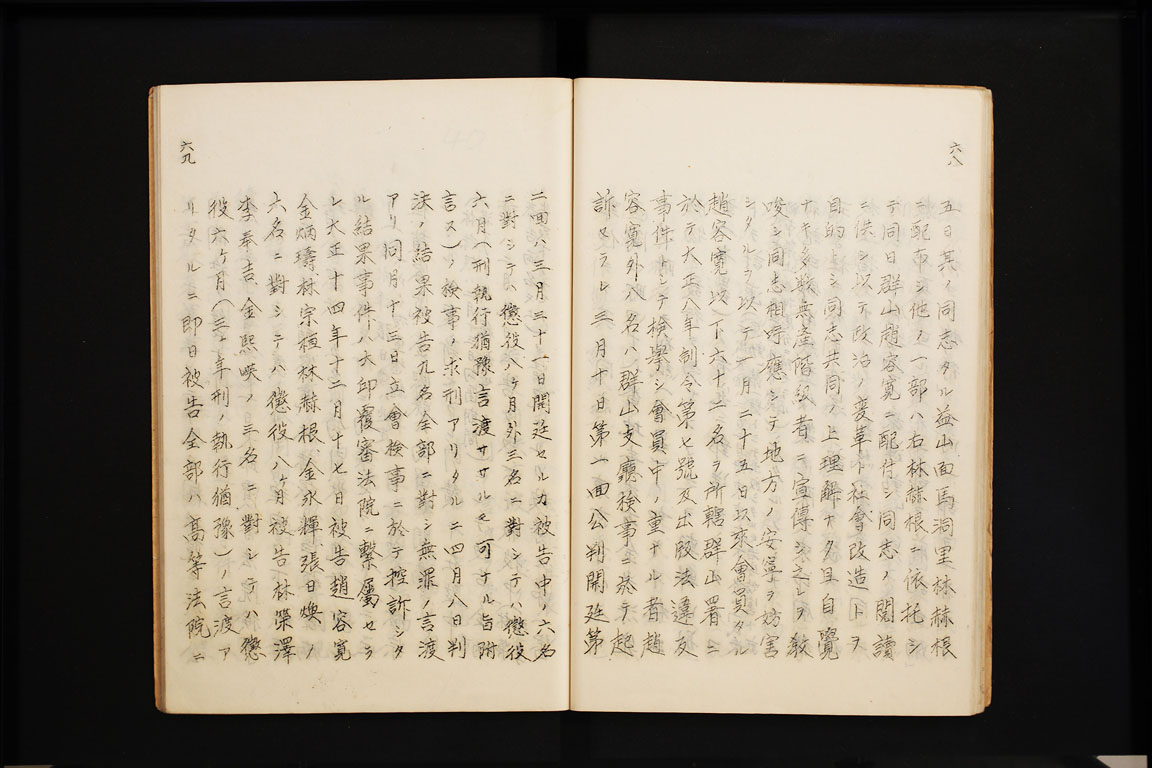 六八
五日其ノ同志タル益山面馬洞里林赫根
ニ配布シ他ノ一部ハ右林赫根ニ依托シ
テ同日群山趙容寛ニ配付シ同志ノ閲讀
ニ供シ以テ政治ノ変革ト社會改造トヲ
目的トシ同志共同ノ上理解ナク且自覺
ナキ多数無產階級者ニ宣傳シ之レヲ敎
唆シ同志相呼應シテ地方ノ安寧ヲ妨害
シタルヲ以テ一月二十五日以來會員タル
趙容寛以下六十二名ヲ所轄群山署ニ
於テ大正八年制令第七號及出版法違反
事件トシテ検擧シ會員中ノ重ナル者趙
容寛外八名ハ群山支廳検事ニ於テ起
訴セラレ三月十日第一回公判開廷第
六九
二回ハ三月三十一日開廷セルカ被告中ノ六名
ニ對シテハ懲役八ヶ月外三名ニ對シテハ懲役
六月（刑執行猶豫言渡ササルモ可ナル旨附
言ス）ノ検事ノ求刑アリタルニ四月八日判
決ノ結果被告九名全部ニ對シ無罪ノ言渡
アリ同月十三日立會検事ニ於テ控訴シタ
ル結果事件ハ大邱覆審法院ニ繋屬セラ
レ大正十四年十二月十七日被告趙容寛
金炳璹林宗桓林赫根、金永輝張日煥ノ
六名ニ對シテハ懲役八ヶ月被告林榮澤
李奉吉、金熙暎ノ三名ニ對シテハ懲
役六ヶ月（三ヶ年刑ノ執行猶豫）ノ言渡ア
リタルニ即日被告全部ハ高等法院ニ